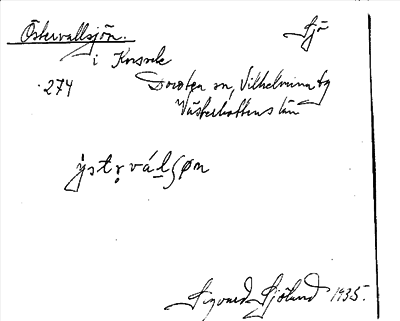 Östervallsjön. Sjö
i Korsele
274 Dorotea sn, Vilhelmina tg
Västerbottens län
ýstr̥válʂøn
Sigvard Sjölund 1935.